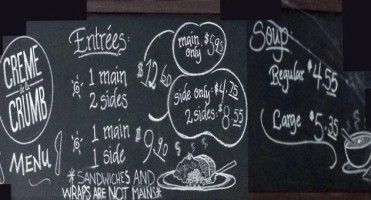 CREME
de la
CRUMB
MENU
Entrées:
1 main
2 sides
$12.60
1 main
1 side
$9.90
*SANDWICHES AND
WRAPS ARE NOT MAINS*
main only $5.95
side only: $4.75
2 sides: $8.55
Soup
Regular $4.55
Large $5.35